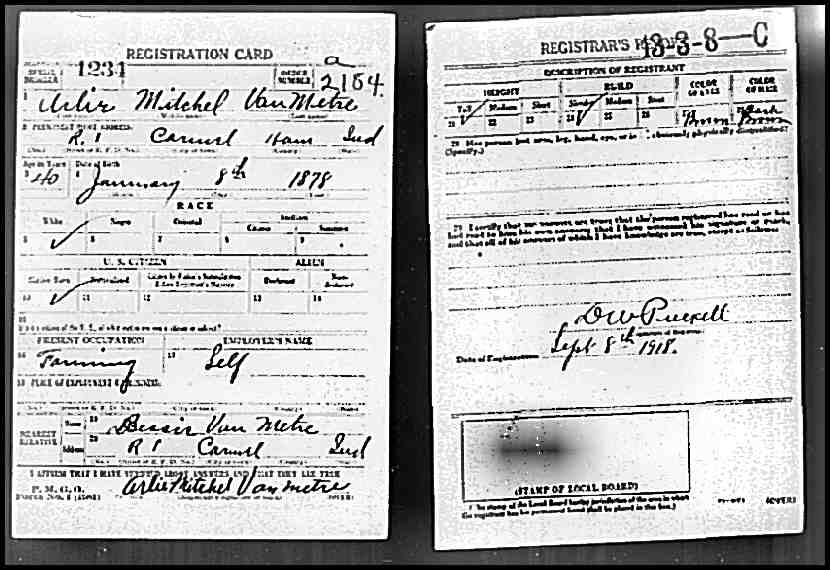 REGISTRATION CARD
SERIAL NUMBER 1231
ORDER NUMBER a 2184
1 Arlie Mitchel VanMetre
2 PERMANENT HOME ADDRESS:
R. 1 Carmel Ham Ind
Age in Years Date of Birth
3 40 4 January 8th 1878
RACE
White Negro Oriental Indian
Citizen
5 6 7 8 9
U. S. CITIZEN ALIEN
Native Born Naturalized Declarant Non-declarant
10 11 12 13 14
15
PRESENT OCCUPATION EMPLOYER'S NAME
16 Farming 17 Self
18 PLACE OF EMPLOYMENT OR BUSINESS:
NEAREST RELATIVE
Name 19 Bessie Van Metre
Address 20 R 1 Carmel Ind
I AFFIRM THAT I HAVE VERIFIED ABOVE ANSWERS AND THAT THEY ARE TRUE
P. M. G. O.
Arlie Mitchel VanMetre
(OVER)
REGISTRAR'S REPORT 13-3-8-C
DESCRIPTION OF REGISTRANT
HEIGHT BUILD COLOR OF EYES COLOR OF HAIR
Tall Medium Short Slender Medium Stout
21 22 23 24 25 26 27 Brown 28 Dark Brown
29 Has person lost arm, leg, hand, eye, or is he obviously physically disqualified?
(Specify.)
30 I certify that my answers are true; that the person registered has read or has
had read to him his own answers; that I have witnessed his signature or mark,
and that all of his answers of which I have knowledge are true, except as follows:
D W Puckett
Date of Registration Sept 8th 1918.
(STAMP OF LOCAL BOARD)
(The stamp of the Local Board having jurisdiction of the area in which
the registrant has his permanent home shall be placed in this box.)
(OVER)